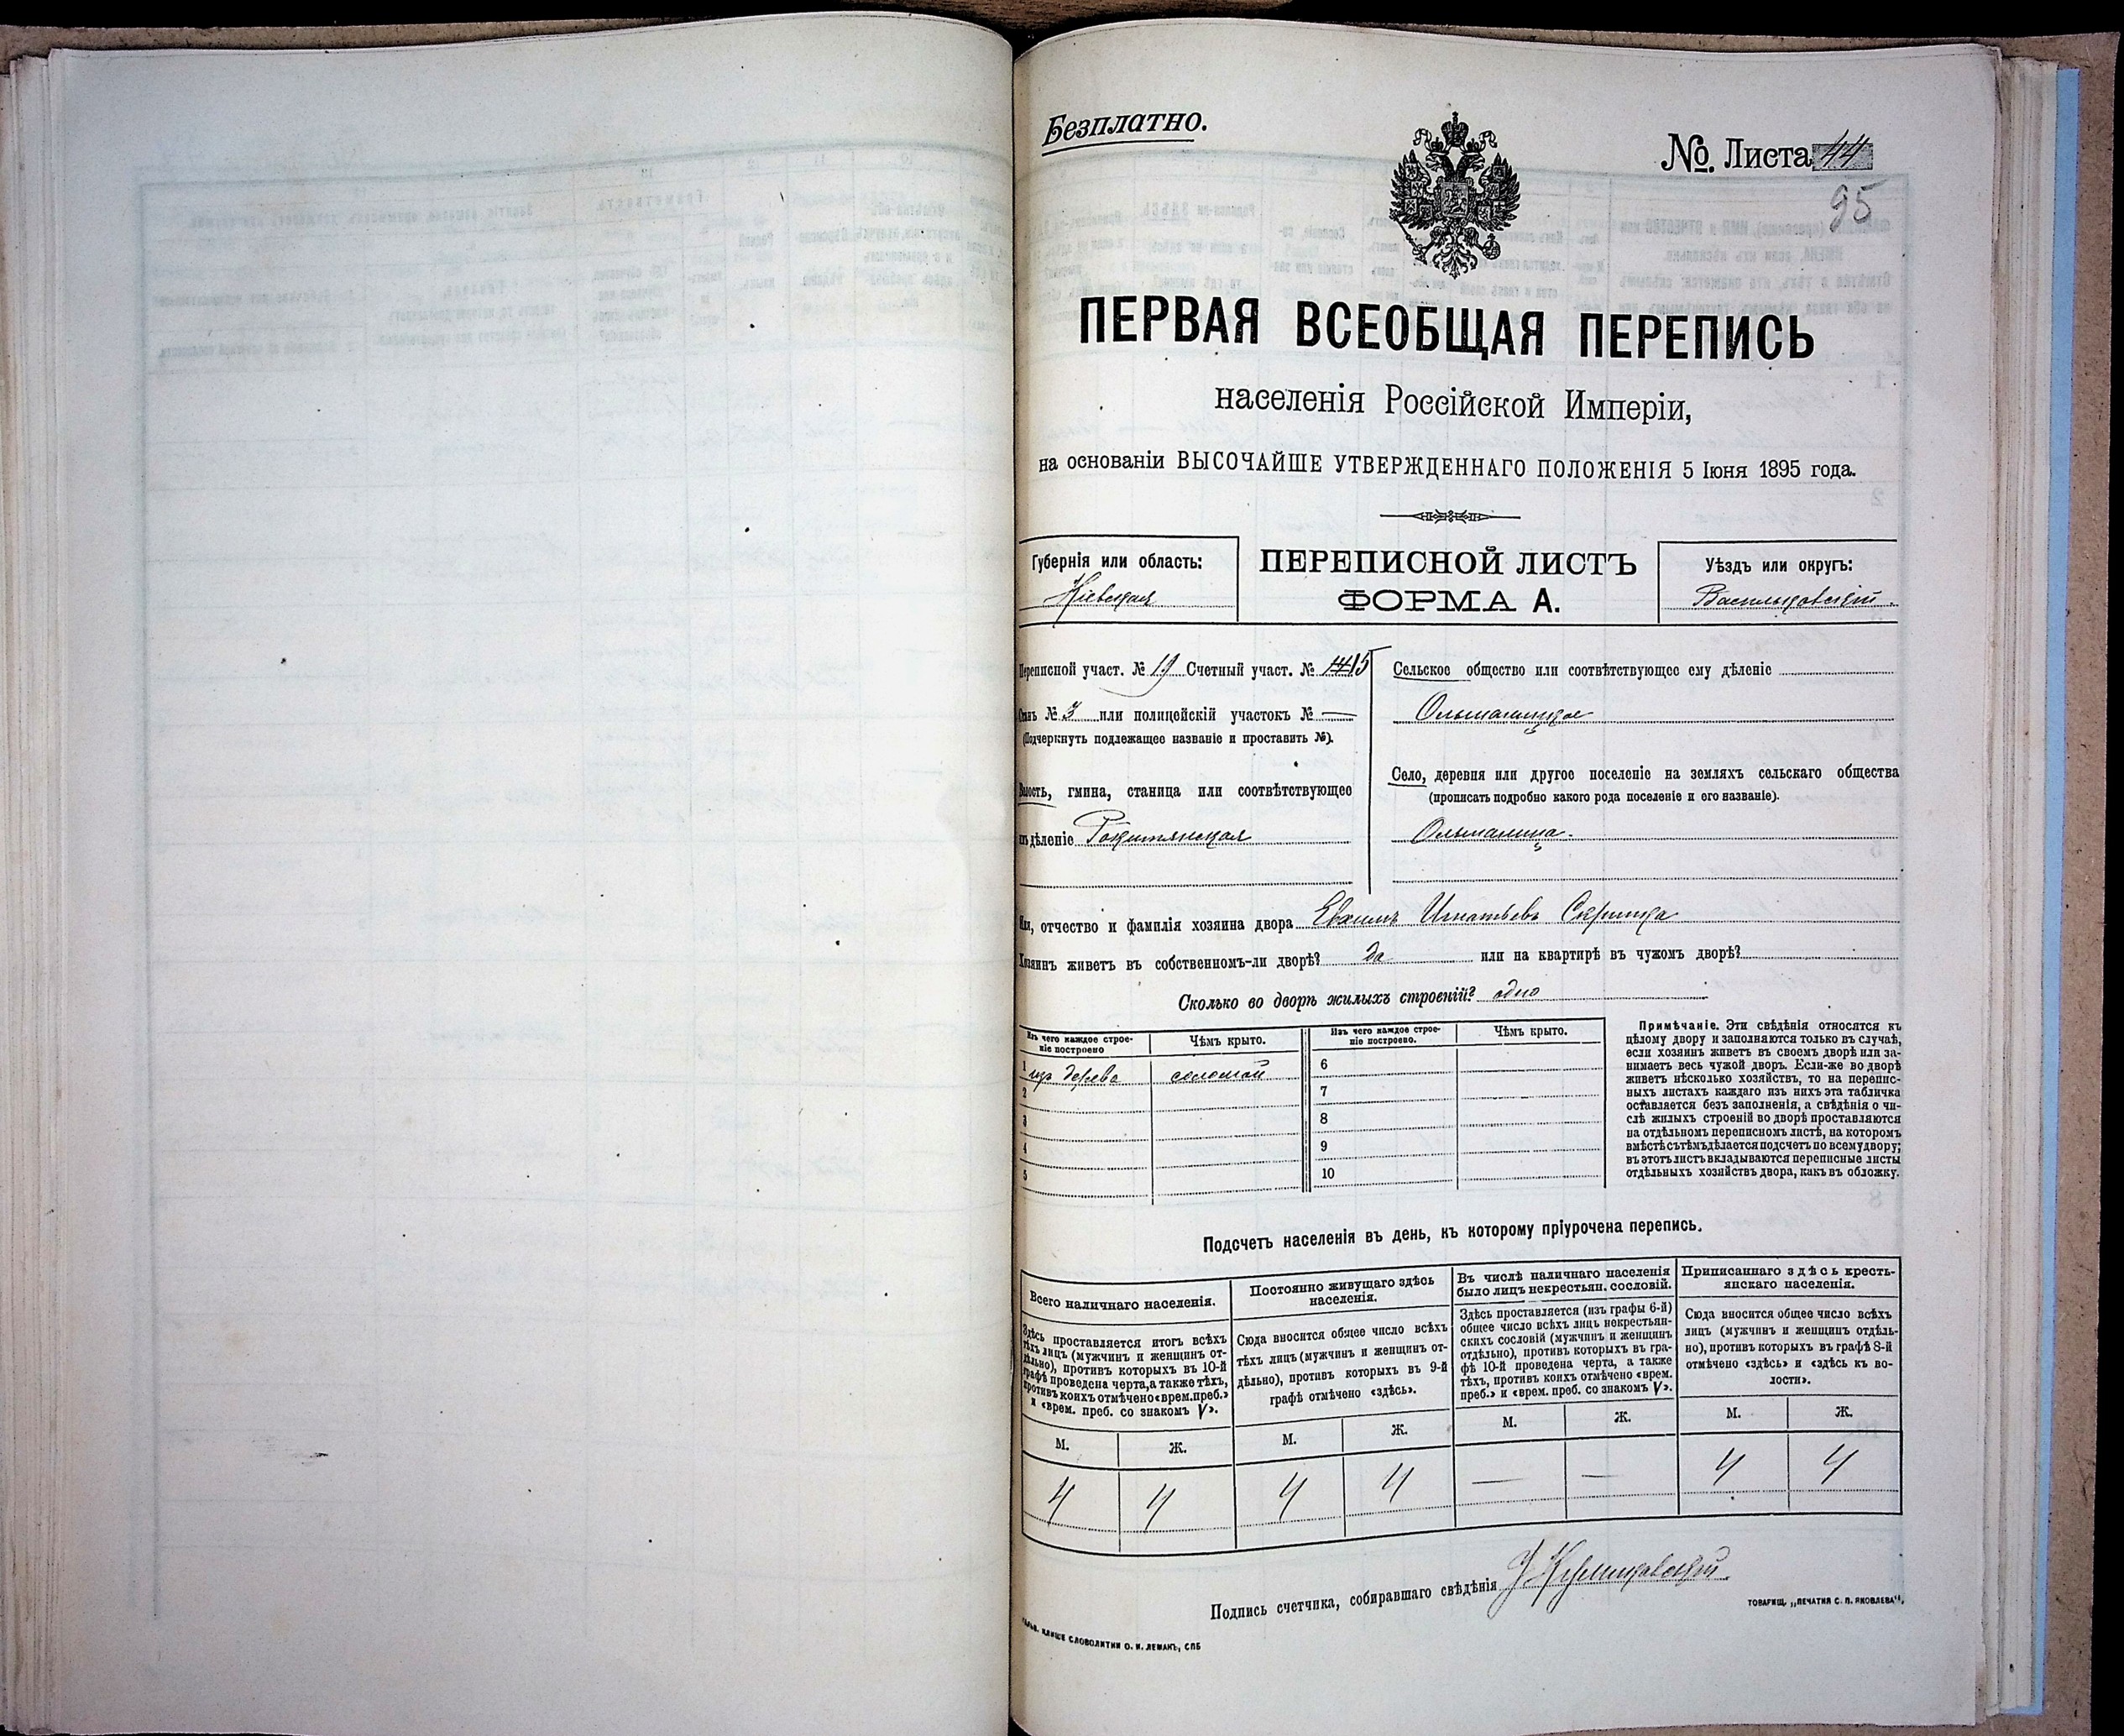 Безплатно.
№. Листа 44
95
ПЕРВАЯ ВСЕОБЩАЯ ПЕРЕПИСЬ
населенія Россійской Имперіи,
на основаніи ВЫСОЧАЙШЕ УТВЕРЖДЕННАГО ПОЛОЖЕНІЯ 5 Іюня 1895 года.
Губернія или область:
Кіевская
ПЕРЕПИСНОЙ ЛИСТЪ
ФОРМА А.
Уѣздъ или округъ:
Васильковскій.
Переписной участ. № 19 Счетный участ. № 15
Станъ № 3 или полицейскій участокъ № —
(Подчеркнуть подлежащее названіе и проставить №).
Волость, гмина, станица или соотвѣтствующее
имъ дѣленіе Рокитянская
Сельское общество или соотвѣтствующее ему дѣленіе
Ольшаницкое
Село, деревня или другое поселеніе на земляхъ сельскаго общества
(прописать подробно какого рода поселеніе и его названіе).
Ольшаница.
Имя, отчество и фамилія хозяина двора Евхимъ Игнатьевъ Скрипка
Хозяинъ живетъ въ собственномъ-ли дворѣ? да или на квартирѣ въ чужомъ дворѣ?
Сколько во дворѣ жилыхъ строеній? одно
Изъ чего каждое строеніе построено
Чѣмъ крыто.
Изъ чего каждое строе-
ніе построено.
Чѣмъ крыто.
1 изъ дерева соломой 6
2 7
3 8
4 9
5 10
Примѣчаніе. Эти свѣдѣнія относятся къ
цѣлому двору и заполняются только въ случаѣ,
если хозяинъ живетъ въ своемъ дворѣ или за-
нимаетъ весь чужой дворъ. Если-же во дворѣ
живетъ нѣсколько хозяйствъ, то на перепис-
ныхъ листахъ каждаго изъ нихъ эта табличка
оставляется безъ заполненія, а свѣдѣнія о чи-
слѣ жилыхъ строеній во дворѣ проставляются
на отдѣльномъ переписномъ листѣ, на которомъ
вмѣстѣ съ тѣмъ дѣлается подсчетъ по всему двору;
въ этотъ листъ вкладываются переписные листы
отдѣльныхъ хозяйствъ двора, какъ въ обложку.
Подсчетъ населенія въ день, къ которому пріурочена перепись.
Всего наличнаго населенія.
Здѣсь проставляется итогъ всѣхъ
тѣхъ лицъ (мужчинъ и женщинъ от-
дѣльно), противъ которыхъ въ 10-й
графѣ проведена черта, а также тѣхъ,
противъ коихъ отмѣчено «врем. преб.»
и «врем. преб. со знакомъ V».
Постоянно живущаго здѣсь
населенія.
Сюда вносится общее число всѣхъ
тѣхъ лицъ (мужчинъ и женщинъ от-
дѣльно), противъ которыхъ въ 9-й
графѣ отмѣчено «здѣсь».
Въ числѣ наличнаго населенія
было лицъ некрестьян. сословій.
Здѣсь проставляется (изъ графы 6-й)
общее число всѣхъ лицъ некрестьян-
скихъ сословій (мужчинъ и женщинъ
отдѣльно), противъ которыхъ въ гра-
фѣ 10-й проведена черта, а также
тѣхъ, противъ коихъ отмѣчено «врем.
преб.» и «врем. преб. со знакомъ V».
Приписаннаго здѣсь кресть-
янскаго населенія.
Сюда вносится общее число всѣхъ
лицъ (мужчинъ и женщинъ отдѣль-
но), противъ которыхъ въ графѣ 8-й
отмѣчено «здѣсь» и «здѣсь къ во-
лости».
М. Ж. М. Ж. М. Ж. М. Ж.
4 4 4 4 — — 4 4
Подпись счетчика, собиравшаго свѣдѣнія
ТОВАРИЩ. „ПЕЧАТНЯ С. П. ЯКОВЛЕВА".
КЛИШЕ СЛОВОЛИТНИ О. И. ЛЕМАНЪ, СПБ